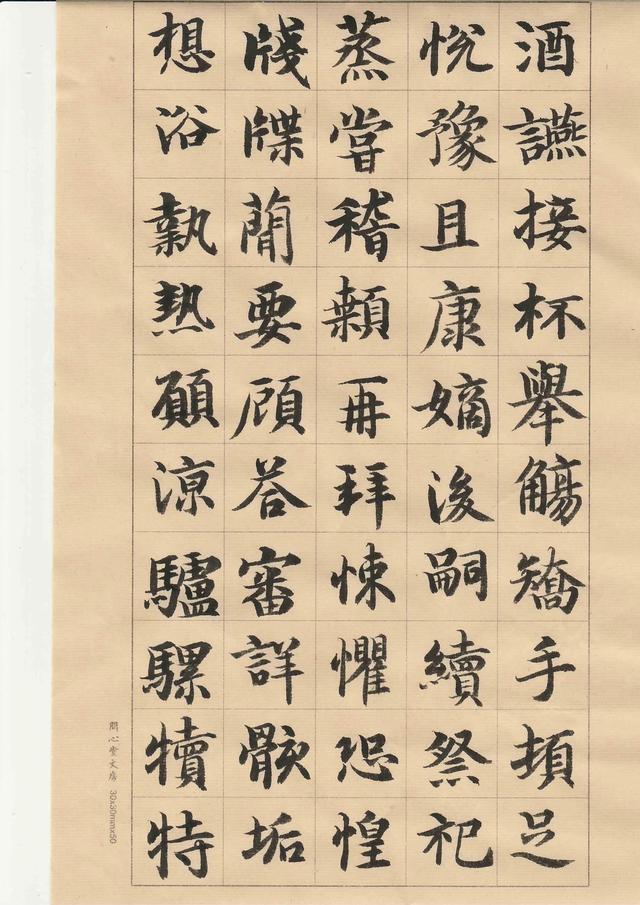 酒讌接杯舉觴矯手頓足
悅豫且康嫡後嗣續祭祀
蒸嘗稽顙再拜悚懼恐惶
牋牒簡要顧答審詳骸垢
想浴執熱願涼驢騾犢特
問心堂文房 30x30mmx50